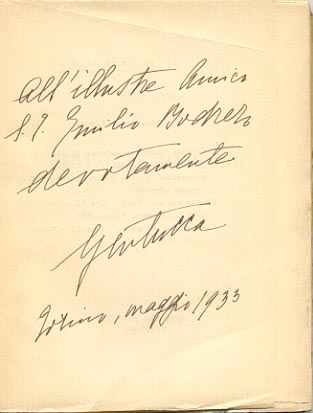 All'illustre Amico
S. E. Emilio Bodrero
devotamente
Torino, maggio 1933